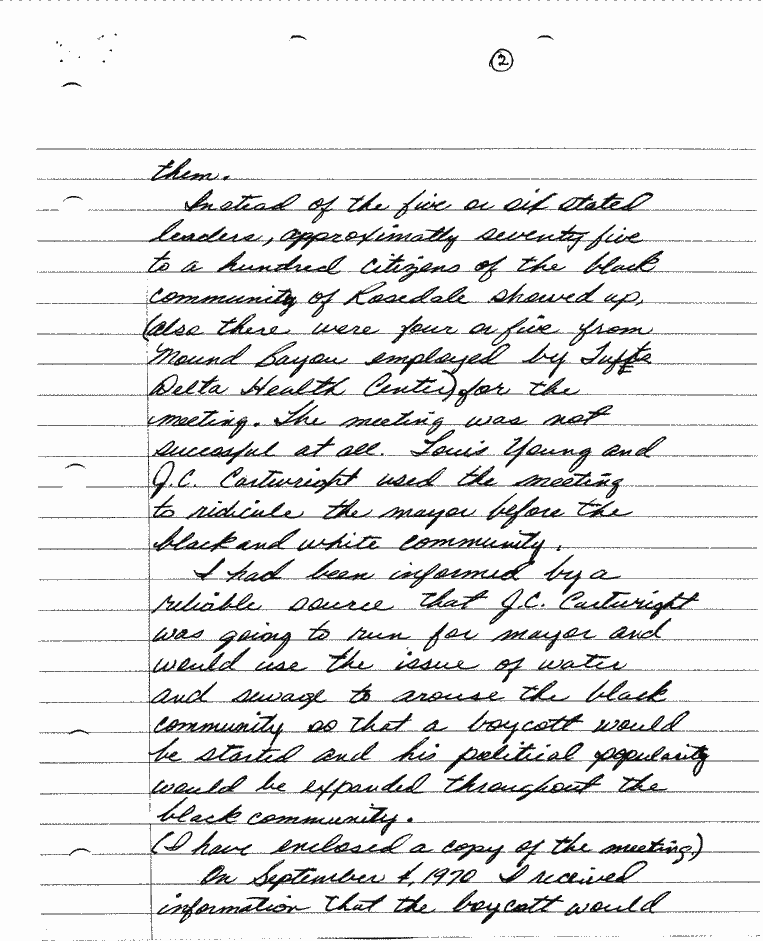 2
them.
Instead of the five or six stated
leaders, approximatly seventy five
to a hundred citizens of the black
community of Rosedale showed up,
(also there were four or five from
Mound Bayou employed by Tufts
Delta Health Center) for the
meeting. The meeting was not
succesful at all. Louis Young and
J.C. Cartwright used the meeting
to ridicule the mayor before the
black and white community.
I had been informed by a
reliable source that J.C. Cartwright
was going to run for mayor and
would use the issue of water
and sewage to arouse the black
community so that a boycott would
be started and his political popularity
would be expanded throughout the
black community.
(I have enclosed a copy of the meeting.)
On September 1970 I received
information that the boycott would